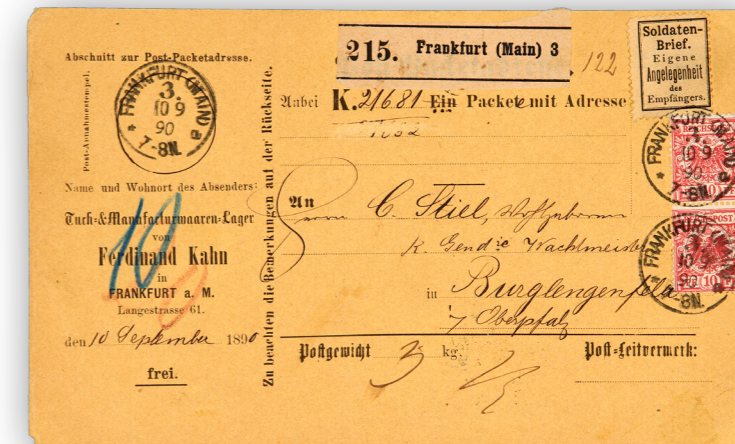 Abschnitt zur Post-Packetadresse.
Post-Annahmestempel.
FRANKFURT (MAIN)
3.
10 9
90
7-8N.
* a
Name und Wohnort des Absenders:
Tuch-&Manufacturwaaren-Lager
von
Ferdinand Kahn
in
FRANKFURT a. M.
Langestrasse 61.
den 10 September 1890
frei.
10
Zu beachten die Bemerkungen auf der Rückseite.
215. Frankfurt (Main) 3
122
Soldaten-
Brief.
Eigene
Angelegenheit
des
Empfängers.
Anbei K. 21681 Ein Packet mit Adresse
An
Herrn C. Stiel,
K. Gendie Wachtmeister
in Burglengenfeld
Oberpfalz
Postgewicht 3 kg.
Post-Leitvermerk:
FRANKFURT (MAIN)
10 9
90
7-8N.
* a
REICHSPOST
10 PF
FRANKFURT (MAIN)
10 9
90
7-8N.
* a
10